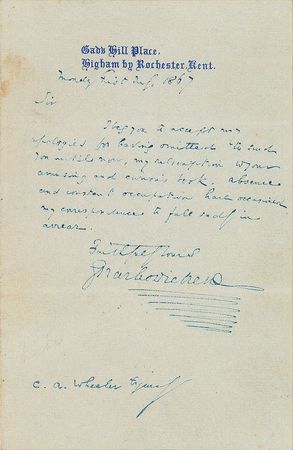 Gad's Hill Place,
Higham by Rochester, Kent.
Monday First July, 1867
Sir
I beg you to accept my
apologies for having omitted to send
you until now, my subscription to your
amusing and curious book. absence
and constant occupation have occasioned
my correspondence to fall sadly in
arrear.
Faithfully Yours
Charles Dickens
C. A. Wheeler Esquire